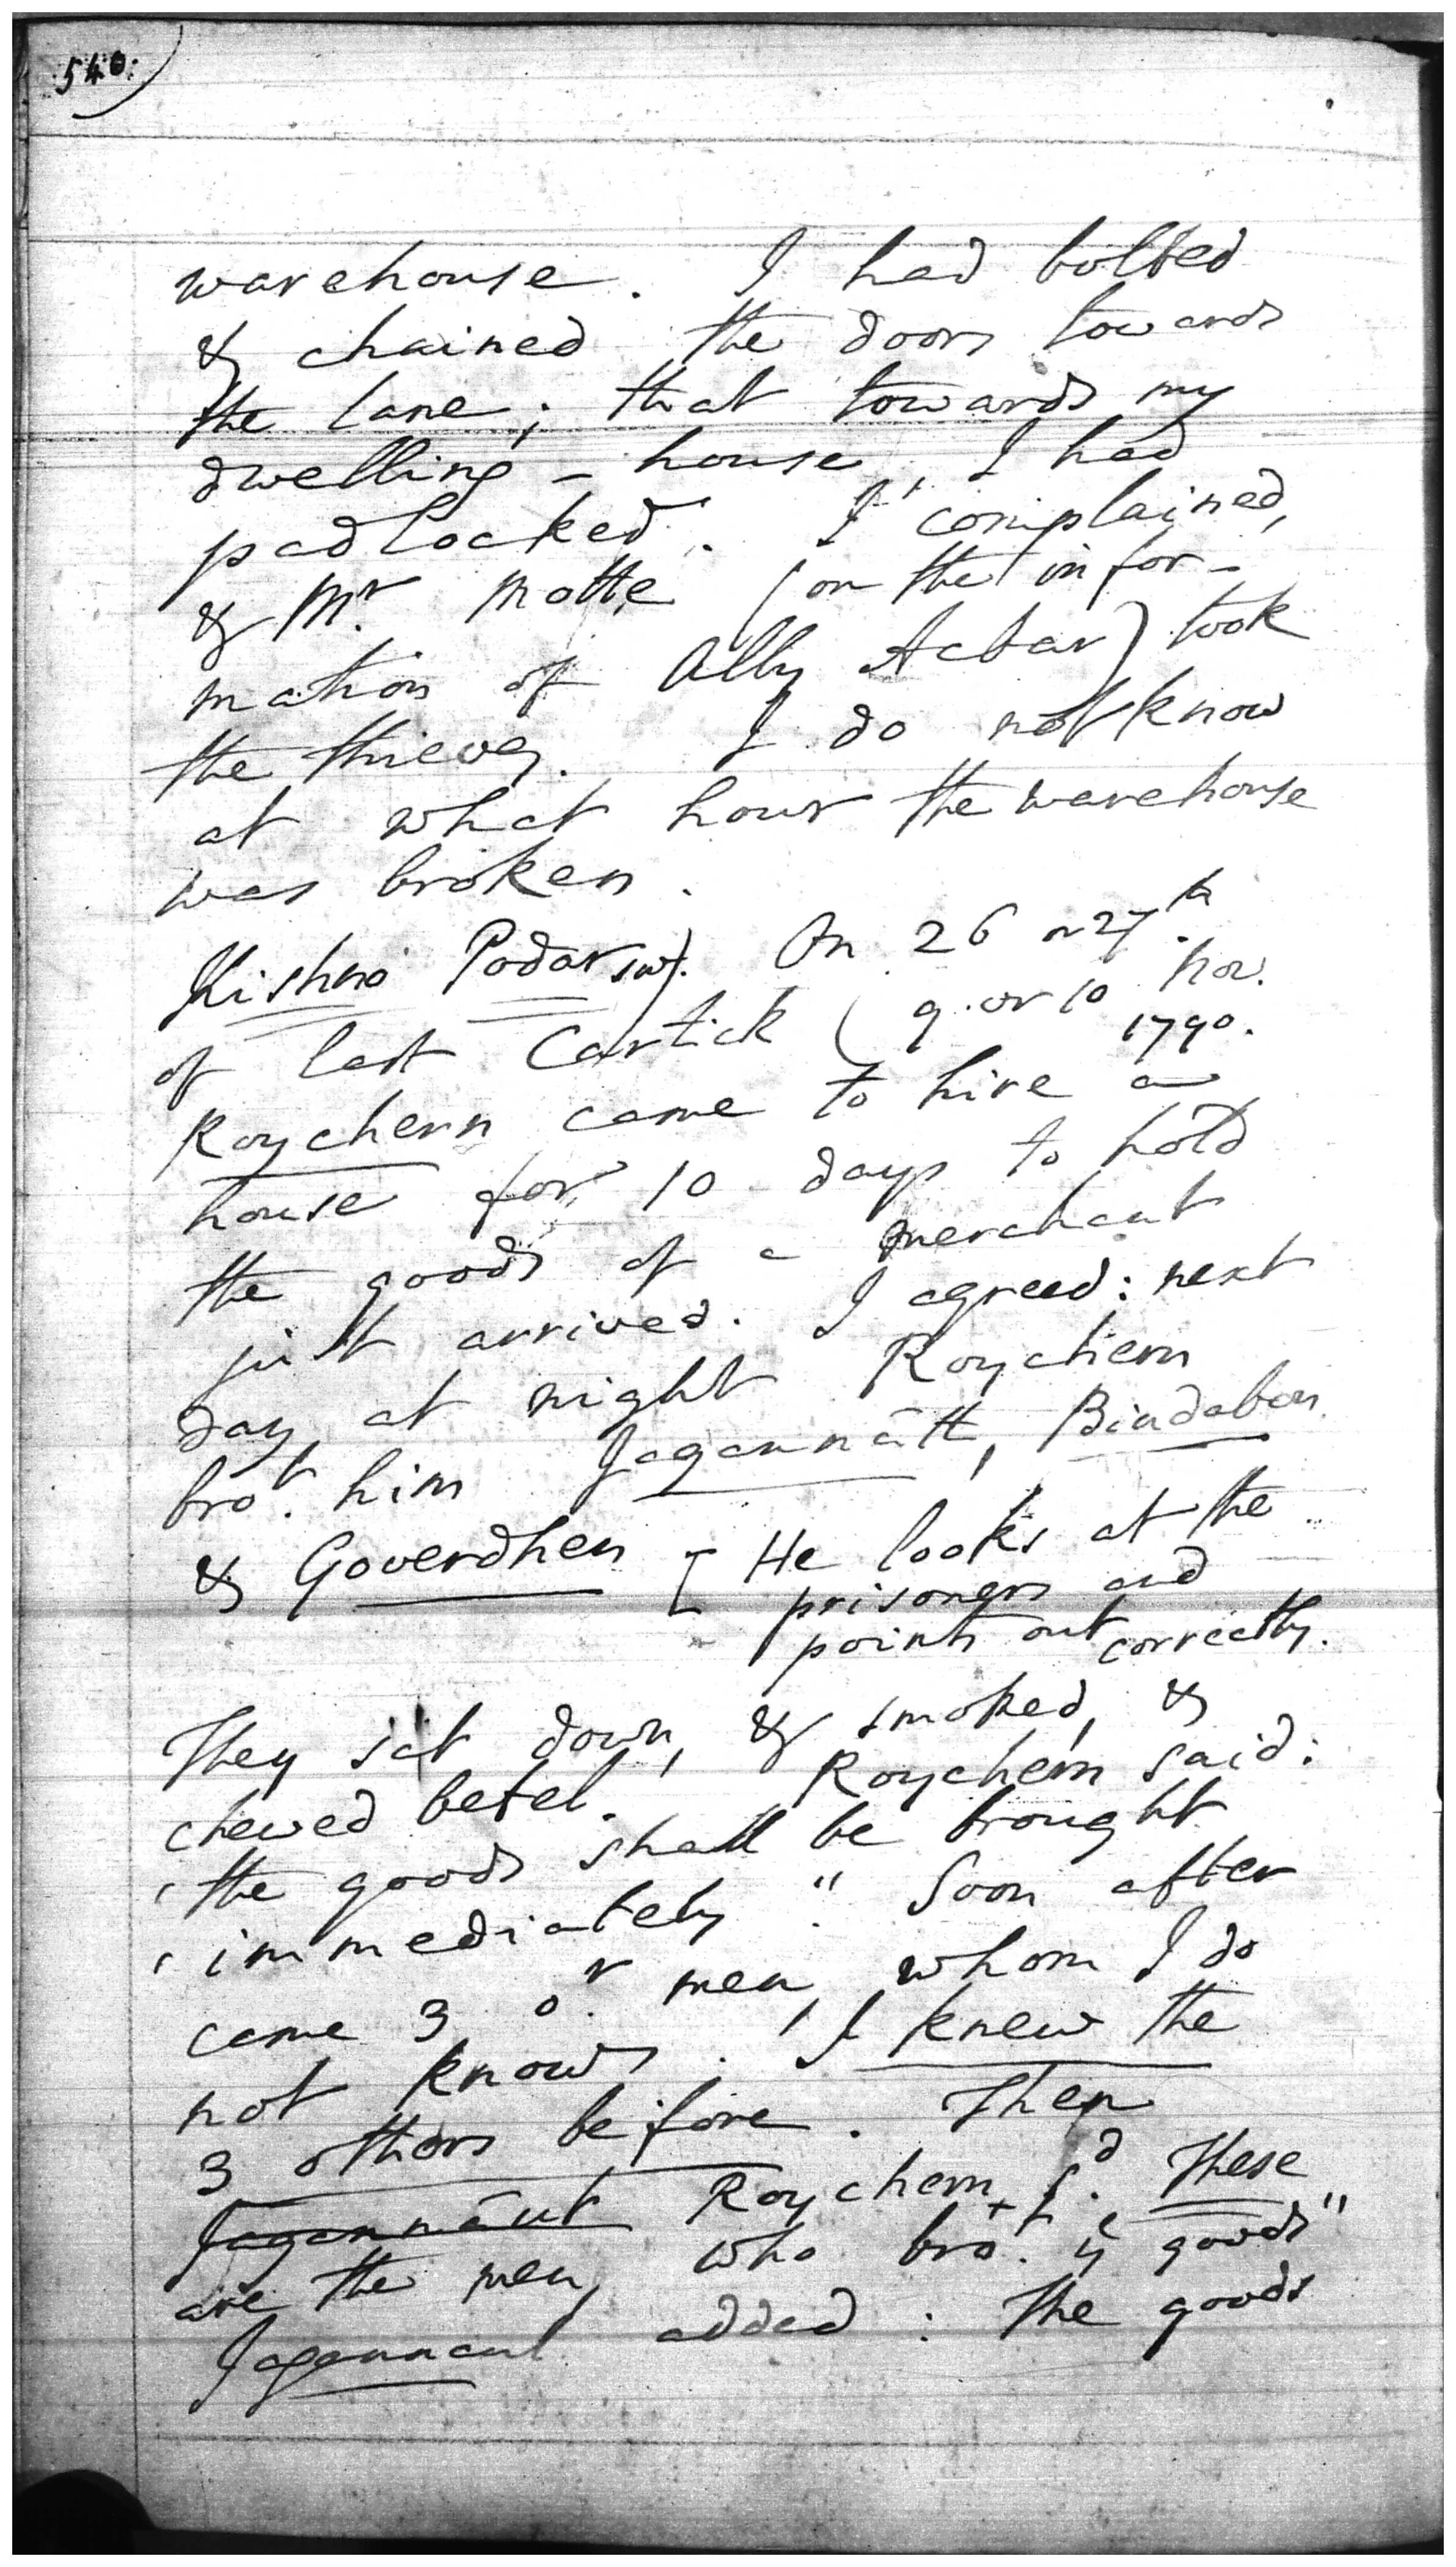 540.
warehouse. I had bolted
& chained the doors towards
the lane; that towards my
dwelling-house I had
padlocked. I complained,
& Mr. Motte (on the infor-
mation of Ally Acbar) took
the thieves. I do not know
at what hour the warehouse
was broken.
Kishno Podar sw). On 26 or 27th.
of last Cartick (9. or 10 Nov.
1790.
Roychern came to hire a
house for 10 days to hold
the goods of a merchant
just arrived. I agreed: next
day, at night Roychern
brot. him Jagannātt, Bindaban
& Goverdhen [He looks at the
prisoners and
points out correctly.
They sat down, & smoked, &
chewed betel. Roychern said:
' the goods shall be brought
' immediately." Soon after
came 3 or. men, whom I do
not know. I knew the
3 others before. Then
Jagannāut Roychern sd. These
are the men, who brot. ye goods"
Jagannaut added: The goods